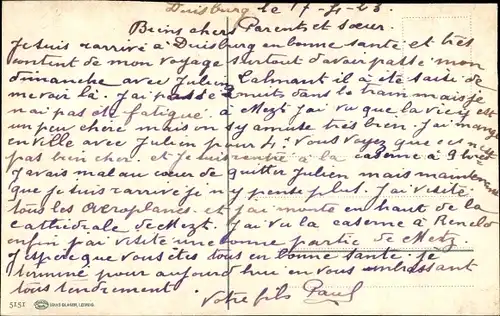 Duisburg le 17-4-23.
Biens chers Parents et sœur.
Je suis rarrivé a Duisburg en bonne santé et très
content de mon voyage surtout d'avoir passé mon
dimanche avec Julien Calnant il a été saisi de
me voir là. J'ai passé 2 nuits dans le train mais je
n'ai pas été fatigué. a Mezt J'ai vu que la vie y est
un peu chere mais on s'y amuse très bien. J'ai mangé
en ville avec Julien pour 4. Vous voyez que ce n'est
pas bien cher. et je suis rentré a la caserne a 9 hres
J'avais mal au cœur de quitter Julien mais maintenant
que je suis rarrivé je n'y pense plus. J'ai visité
tous les aeroplanes. et j'ai monté en haut de la
cathédrale de Mezt. J'ai vu la caserne a
enfin j'ai visité une bonne partie de Metz
J'espère que vous êtes tous en bonne santé. je
terminé pour aujourd'hui en vous embrassant
tous tendrement.
Votre fils Paul
5151 LOUIS GLASER, LEIPZIG.